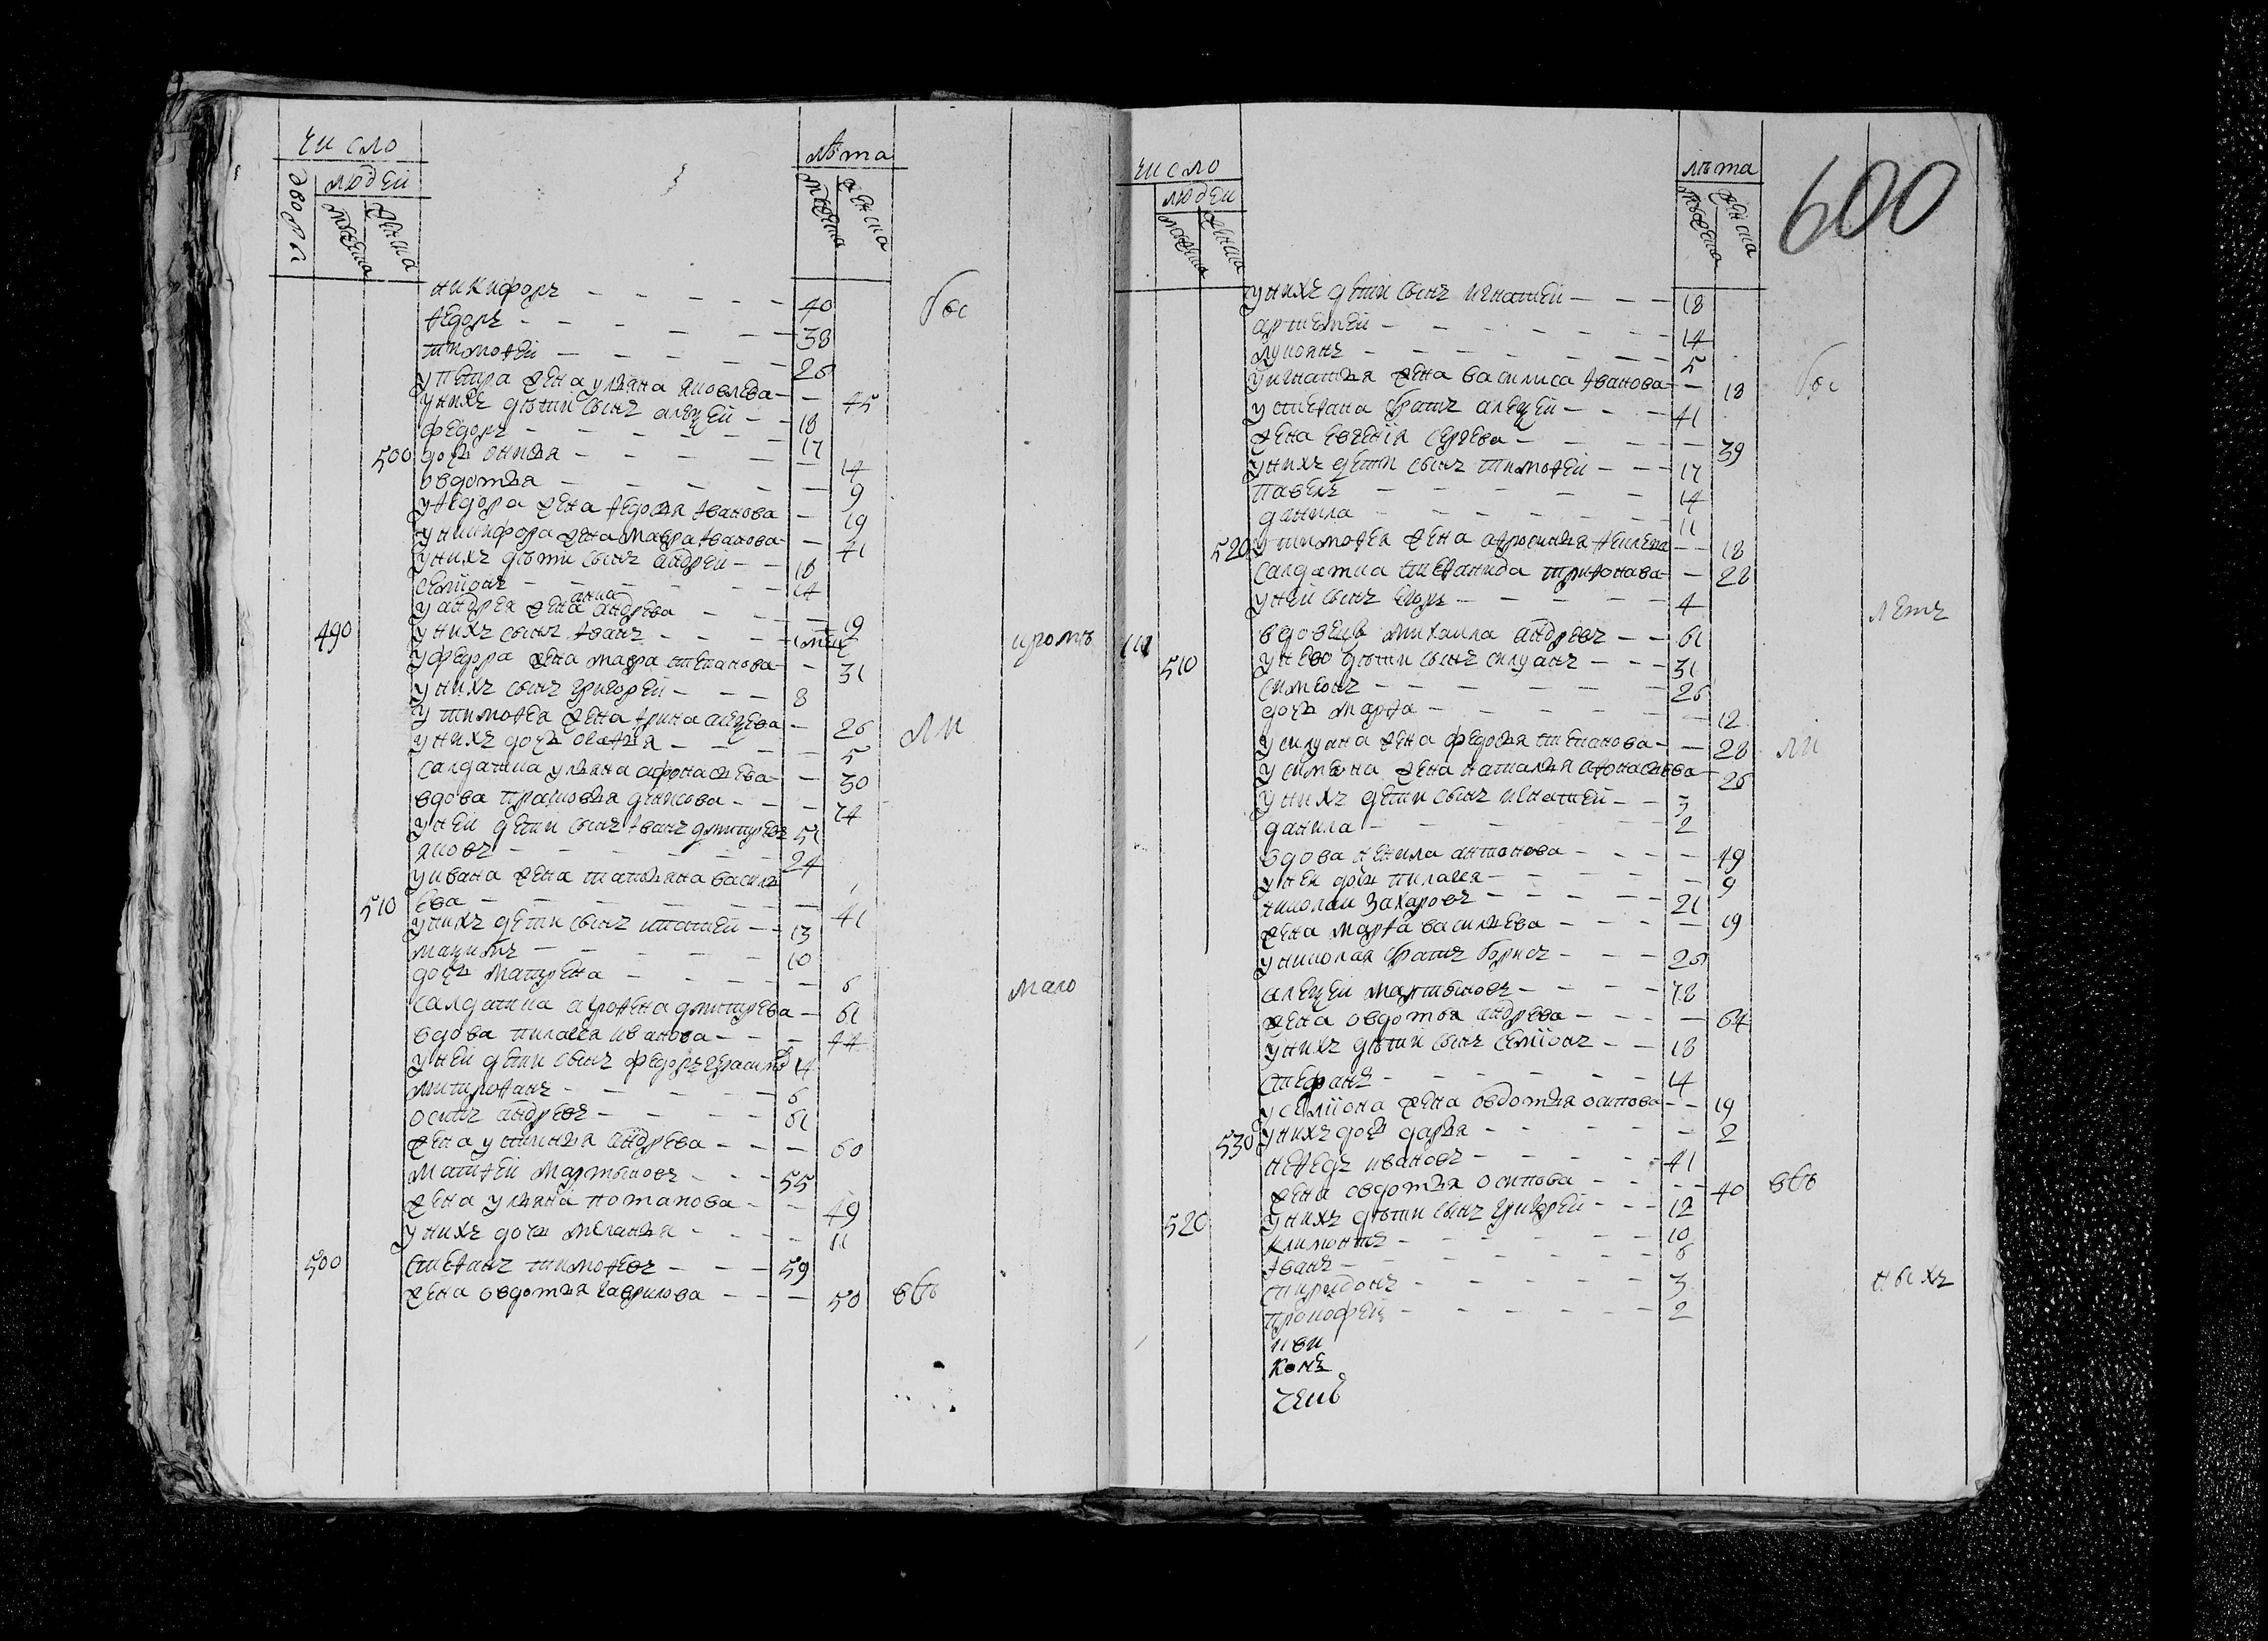 число
лѣта
дворы
людей
мужеска
женска
мужеска
женска
никифоръ 40
ѳедоръ 38
тимоѳей 26
у петра жена ульяна яковлева 45
у нихъ дѣти сынъ алеѯей 18
федоръ 17
500 дочь онисья 14
овдотья 9
у ѳедора жена ѳедосья ѳванова 19
у никифора жена мавра ѳванова 41
у нихъ дѣти сынъ андрей 18
семионъ 14
у андрея жена анна андрева 19
490 у нихъ сынъ ѳванъ
у федора жена мавра степанова 31
у нихъ сынъ григорей 8
у тимоѳея жена ѳрина алеѯева 26
у нихъ дочь 5
салдатка ульяна афонасьева 30
вдова прасковья денисова 74
у ней дети сынъ ѳванъ дмитревъ 51
яковъ 24
у ивана жена татьяна василь
510 ева 41
у нихъ дети сынъ игнатей 13
маѯимъ 10
дочь матрена 6
салдатка агроѳена дмитрева 61
вдова пилагея иванова 44
у ней дети сынъ федоръ герасимов 14
митроѳанъ 6
осипъ андревъ 61
жена устинья андрева 60
матѳей мартыновъ 55
жена ульяна потапова 49
у нихъ дочь меланья 11
500 стеѳанъ тимоѳевъ 59
жена овдотья гаврилова 50
вс
ли
кромѣ
мало
число
лѣта
600
людей
мужеска
женска
мужеска
женска
у нихъ дети сынъ игнатей 18
артемей 14
лукоянъ 5
у игнатья жена василиса ѳванова 18
у стеѳана братъ алеѯей 41
жена евгения сергева 39
у нихъ дети сынъ тимоѳей 17
павелъ 14
данила 11
520 у тимоѳея жена 18
салдатка стеѳанида триѳонава 28
у ней сынъ егоръ 4
вдовецъ михаила андревъ 61
510 у нево дѣти сынъ силуанъ 31
симеонъ 26
дочь марѳа 12
у силуана жена федосья степанова 28
у симеона жена наталья аѳонасьева 26
у нихъ дети сынъ игнатей 3
данила 2
вдова ѳенила антонова 49
у ней дочь пилагея 9
николаи захаровъ 21
жена марѳа васильева 19
у николая братъ борисъ 26
алеѯей мартыновъ 78
жена овдотья андрева 64
у нихъ дѣти сынъ семионъ 18
стефанъ 14
у семиона жена овдотья осипова 19
530 у нихъ дочь дарья 2
неѳедъ ивановъ 41
жена овдотья осипова 40
520 у нихъ дѣти сынъ григорей 12
климонтъ 10
ѳванъ 6
спиридонъ 3
прокофей 2
лѣтъ
ли
ныхъ